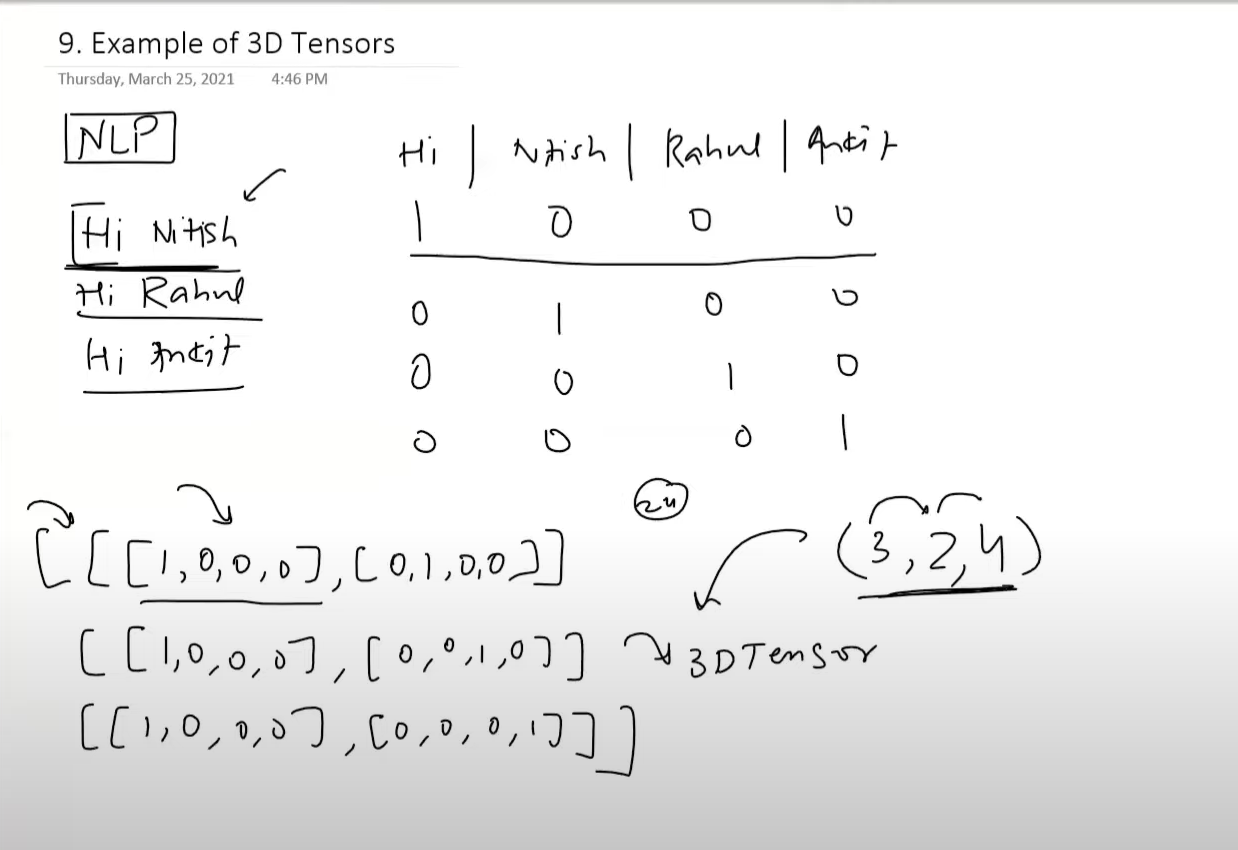 9. Example of 3D Tensors
Thursday, March 25, 2021 4:46 PM
NLP
Hi | Nitish | Rahul | Ankit
1 0 0 0
Hi Nitish
Hi Rahul
0 1 0 0
Hi Ankit
0 0 1 0
0 0 0 1
24
(3,2,4)
[[[1,0,0,0],[0,1,0,0]]
[[1,0,0,0],[0,0,1,0]] 3D Tensor
[[1,0,0,0],[0,0,0,1]]]